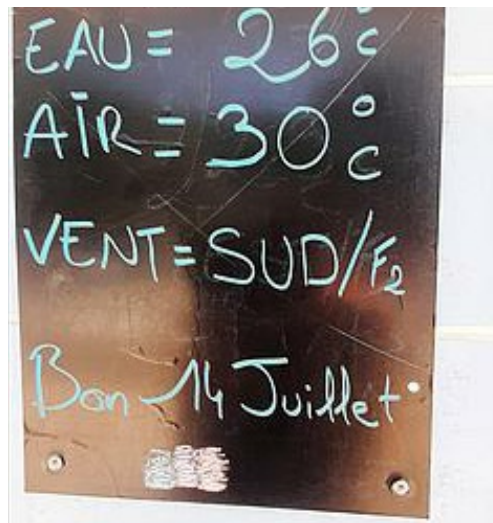 EAU = 26°C
AIR = 30°C
VENT = SUD/F2
Bon 14 Juillet